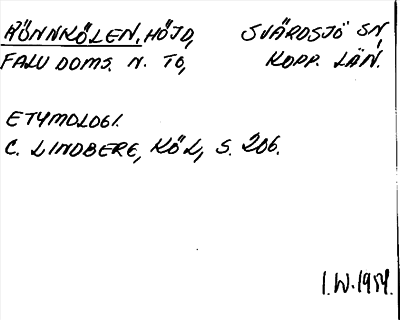 RÖNNKÖLEN, HÖJD, SVÄRDSJÖ SN,
FALU DOMS. N. TO, KOPP. LÄN.
ETYMOLOGI.
C. LINDBERG, KÖL, S. 206.
I.W.1954.